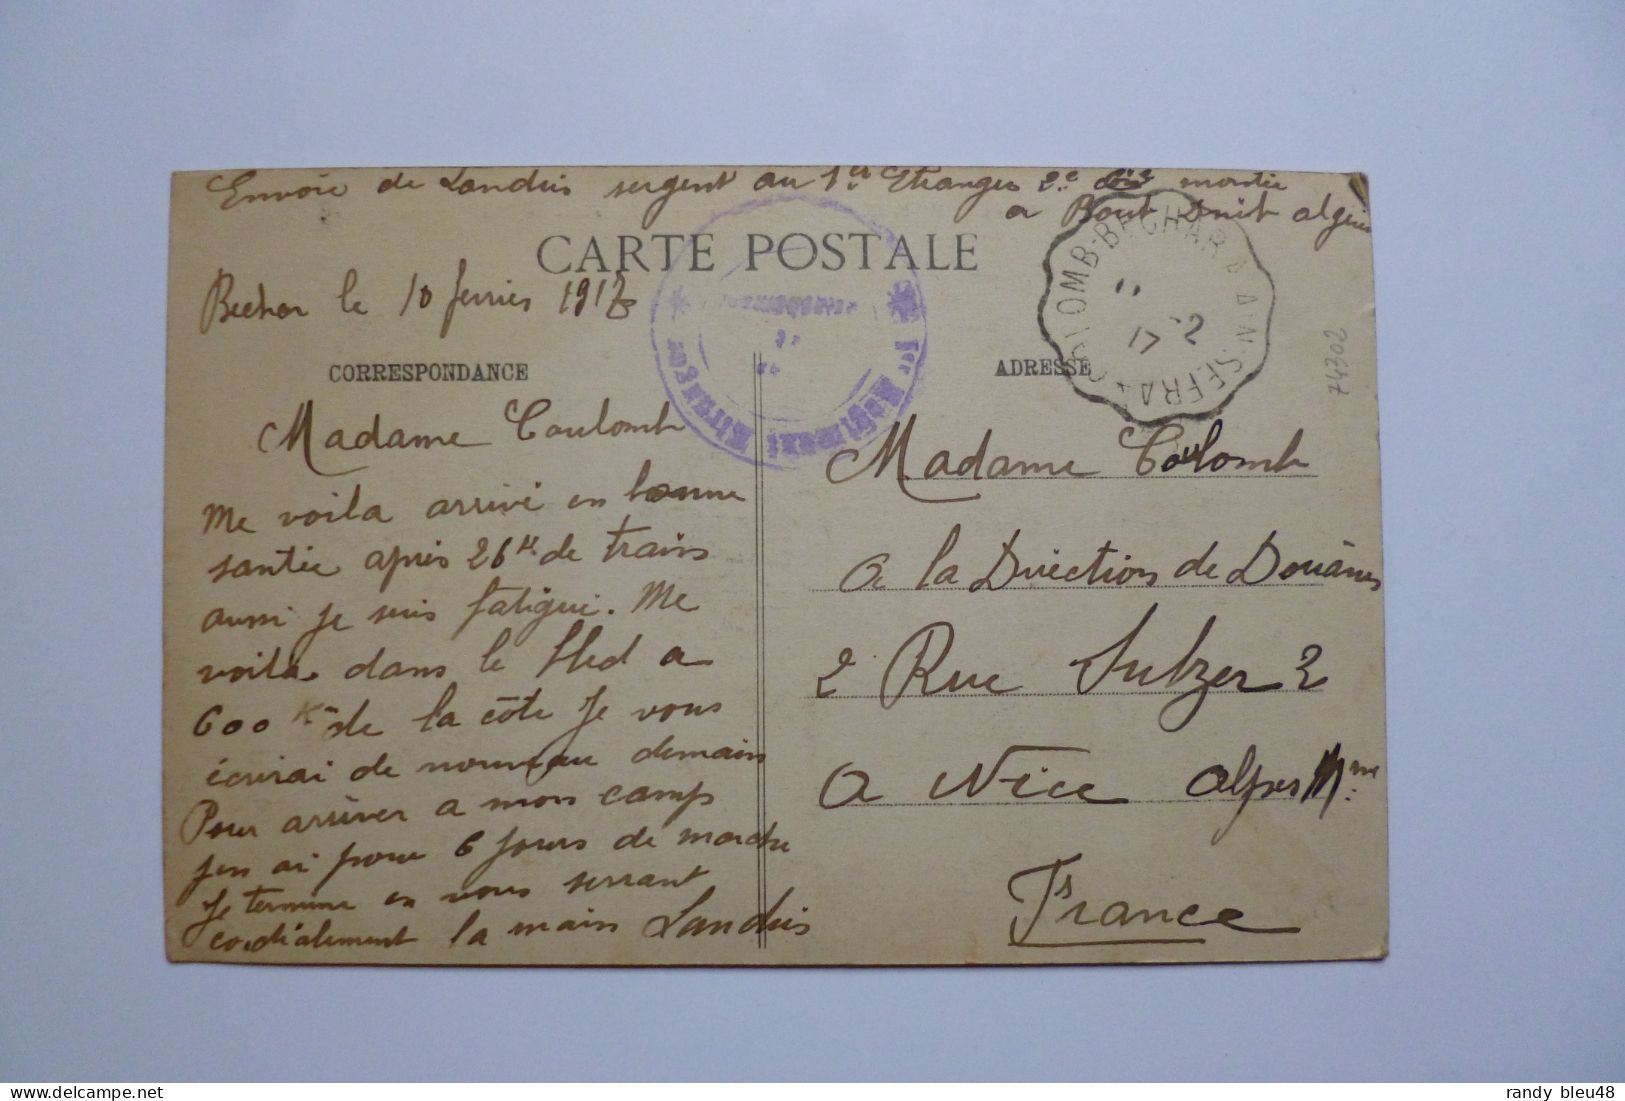 Envoie de Landris sergent au 1er Etranger 2e Cie montée
a Bout Denib algérie
CARTE POSTALE
Bechar le 10 fevrier 191
CORRESPONDANCE
ADRESSE
COLOMB-BECHAR A AIN-SEFRA
17 -2
1er Régiment Etranger
74302
Madame Coulomb
Me voila arrivé en bonne
santée aprés 26 H de train
aussi je suis fatigué. Me
voila dans le Bled a
600 Km de la côte Je vous
écrirai de nouveau demain
Pour arriver a mon camp
jen ai pour 6 jours de marche
Je termine en vous serrant
cordialement la main Landris
Madame Coulomb
a la Direction de Douânes
2 Rue Sulzer 2
a Nice Alpes Mme
France
randy bleu48